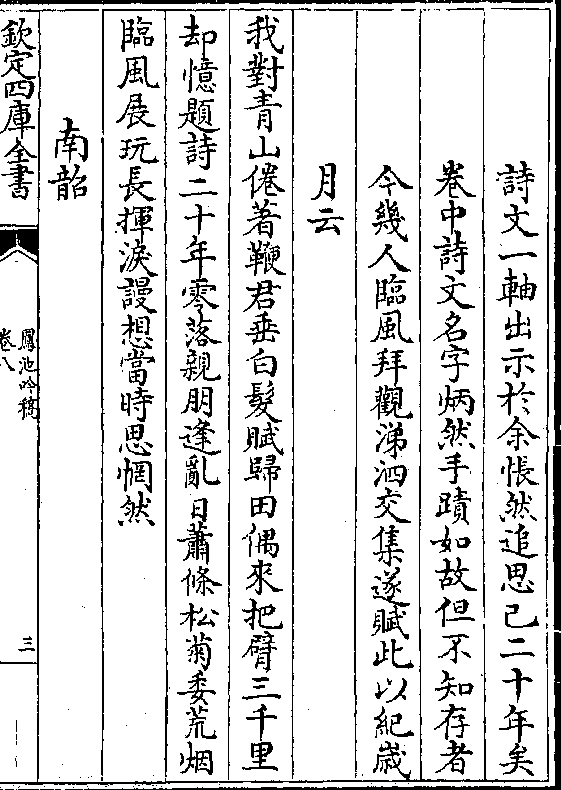 詩文一軸出示於余悵然追思已二十年矣
卷中詩文名字炳然手蹟如故但不知存者
今幾人臨風拜觀涕泗交集遂賦此以紀歲
月云
我對青山倦著鞭君垂白髮賦歸田偶來把臂三千里
却憶題詩二十年零落親朋逢亂日蕭條松菊委荒烟
臨風展玩長揮淚謾想當時思惘然
南韶
欽定四庫全書
鳳池吟稿
卷八
三